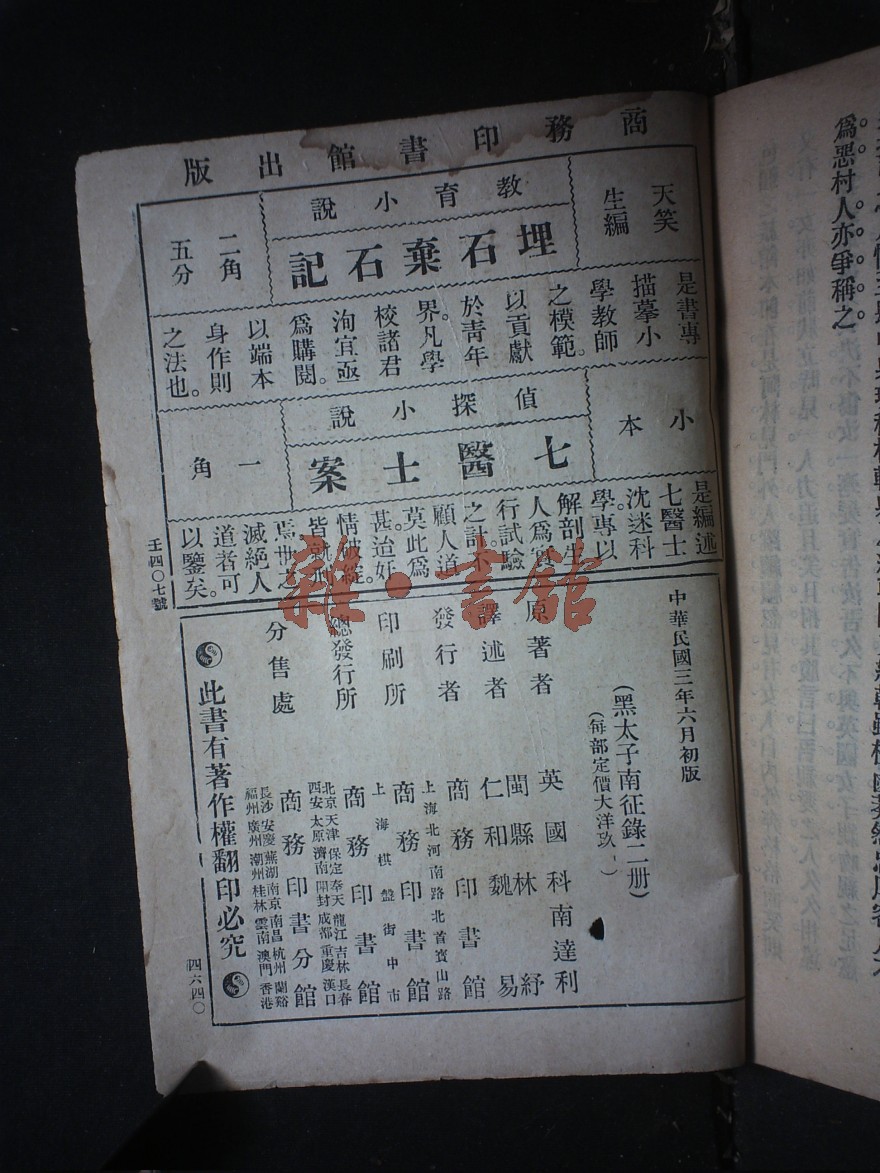 商務印書館出版
天笑
生編
教育小說
埋石棄石記
二角
五分
是書專
描摹小
學教師
之模範。
以貢獻
於靑年
界。凡學
校諸君
洵宜亟
爲購閱。
以端本
身作則
之法也。
小本
偵探小說
七醫士案
一角
是編述
七醫士
沈迷科
學。專以
解剖生
人爲實
行試驗
之計。不
顧人道
莫此爲
甚。迨奸
情破綻。
皆就刑
焉。世之
滅絕人
道者可
以鑒矣。
壬四〇七號
中華民國三年六月初版
(黑太子南征錄二册)
(每部定價大洋玖)
原著者 英國科南達利
譯述者 閩縣林紓
仁和魏易
發行者 商務印書館
上海北河南路北首寶山路
印刷所 商務印書館
上海棋盤街中市
總發行所 商務印書館
北京天津保定奉天龍江吉林長春
西安太原濟南開封成都重慶漢口
分售處 商務印書分館
長沙安慶蕪湖南京南昌杭州蘭谿
福州廣州潮州桂林雲南澳門香港
此書有著作權翻印必究
四六四〇
爲惡村人亦爭稱之。
雜·書館